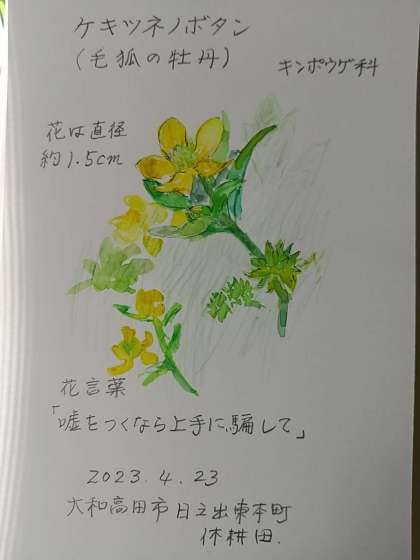 ケキツネノボタン
(毛狐の牡丹)
キンポウゲ科
花は直径
約1.5cm
花言葉
「嘘をつくなら上手に騙して」
2023.4.23
大和高田市日之出東本町
休耕田.